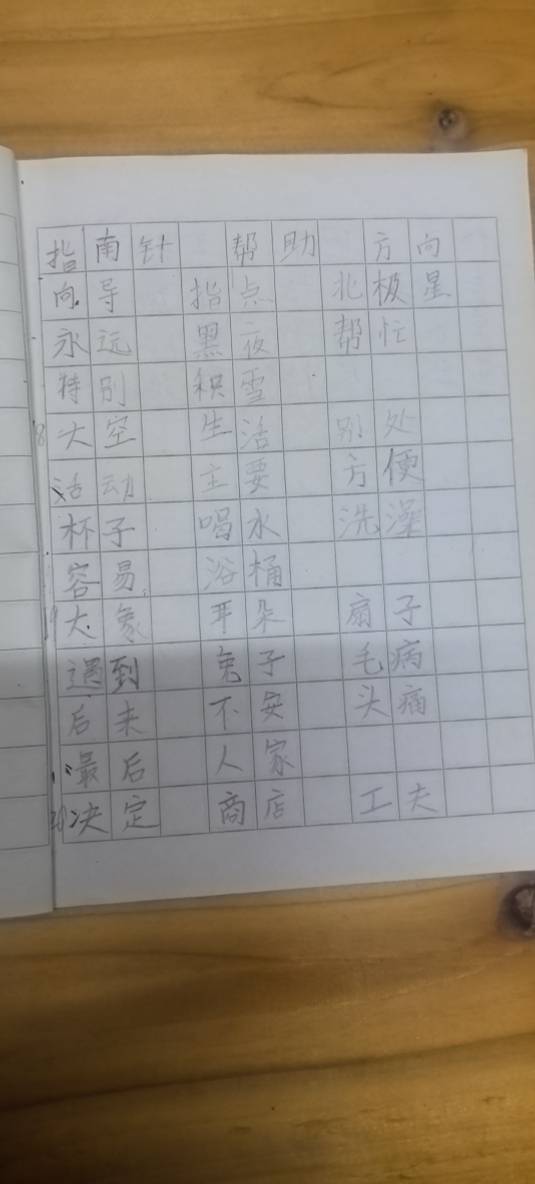 指南针 帮助 方向
向导 指点 北极星
永远 黑夜 帮忙
特别 积雪
18 太空 生活 别处
活动 主要 方便
杯子 喝水 洗澡
容易 浴桶
19 大象 耳朵 扇子
遇到 兔子 毛病
后来 不安 头痛
最后 人家
20 决定 商店 工夫